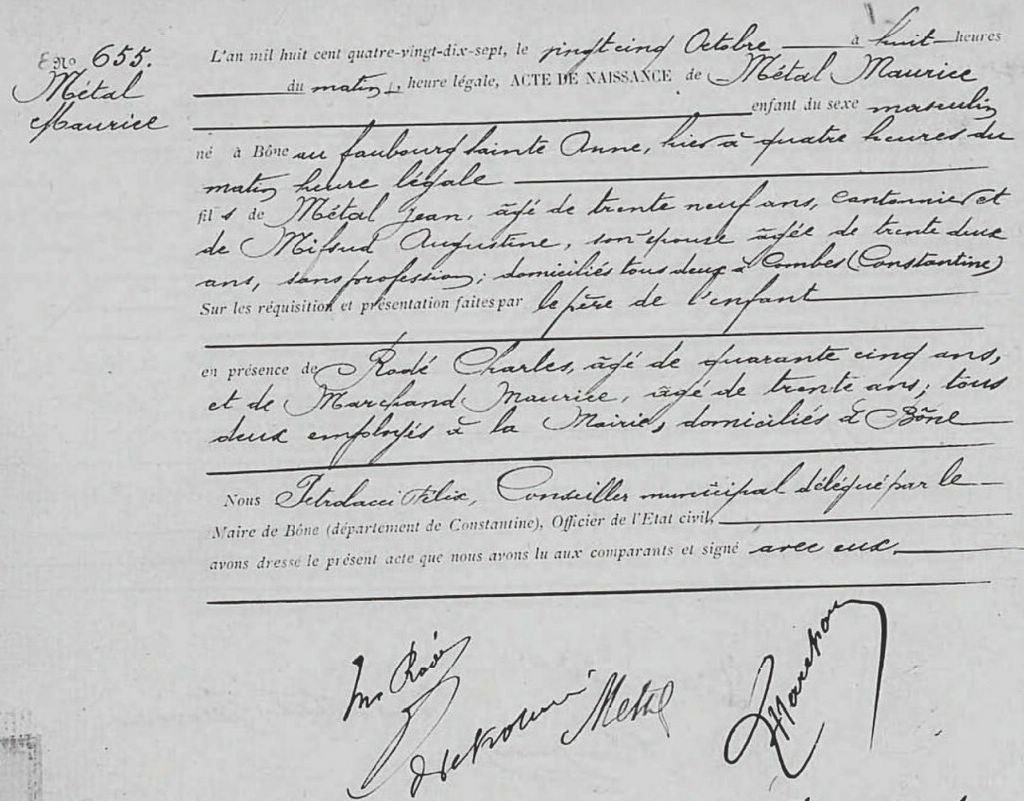 No 655.
Métal
Maurice
L'an mil huit cent quatre-vingt-dix-sept, le vingt cinq Octobre à huit heures
du matin, heure légale, ACTE DE NAISSANCE de Métal Maurice
enfant du sexe masculin
né à Bône au faubourg Sainte Anne, hier à quatre heures du
matin heure légale
fils de Métal Jean, âgé de trente neuf ans, cantonnier et
de Mifsud Augustine, son épouse âgée de trente deux
ans, sans profession; domiciliés tous deux à Combes (Constantine)
Sur les réquisition et présentation faites par le père de l'enfant
en présence de Rodé Charles, âgé de quarante cinq ans,
et de Marchand Maurice, âgé de trente ans; tous
deux employés à la Mairie, domiciliés à Bône
Nous Petrolacci Félix, Conseiller municipal délégué par le
Maire de Bône (département de Constantine), Officier de l'Etat civil,
avons dressé le présent acte que nous avons lu aux comparants et signé avec eux.
Rodé
Metal
Marchand